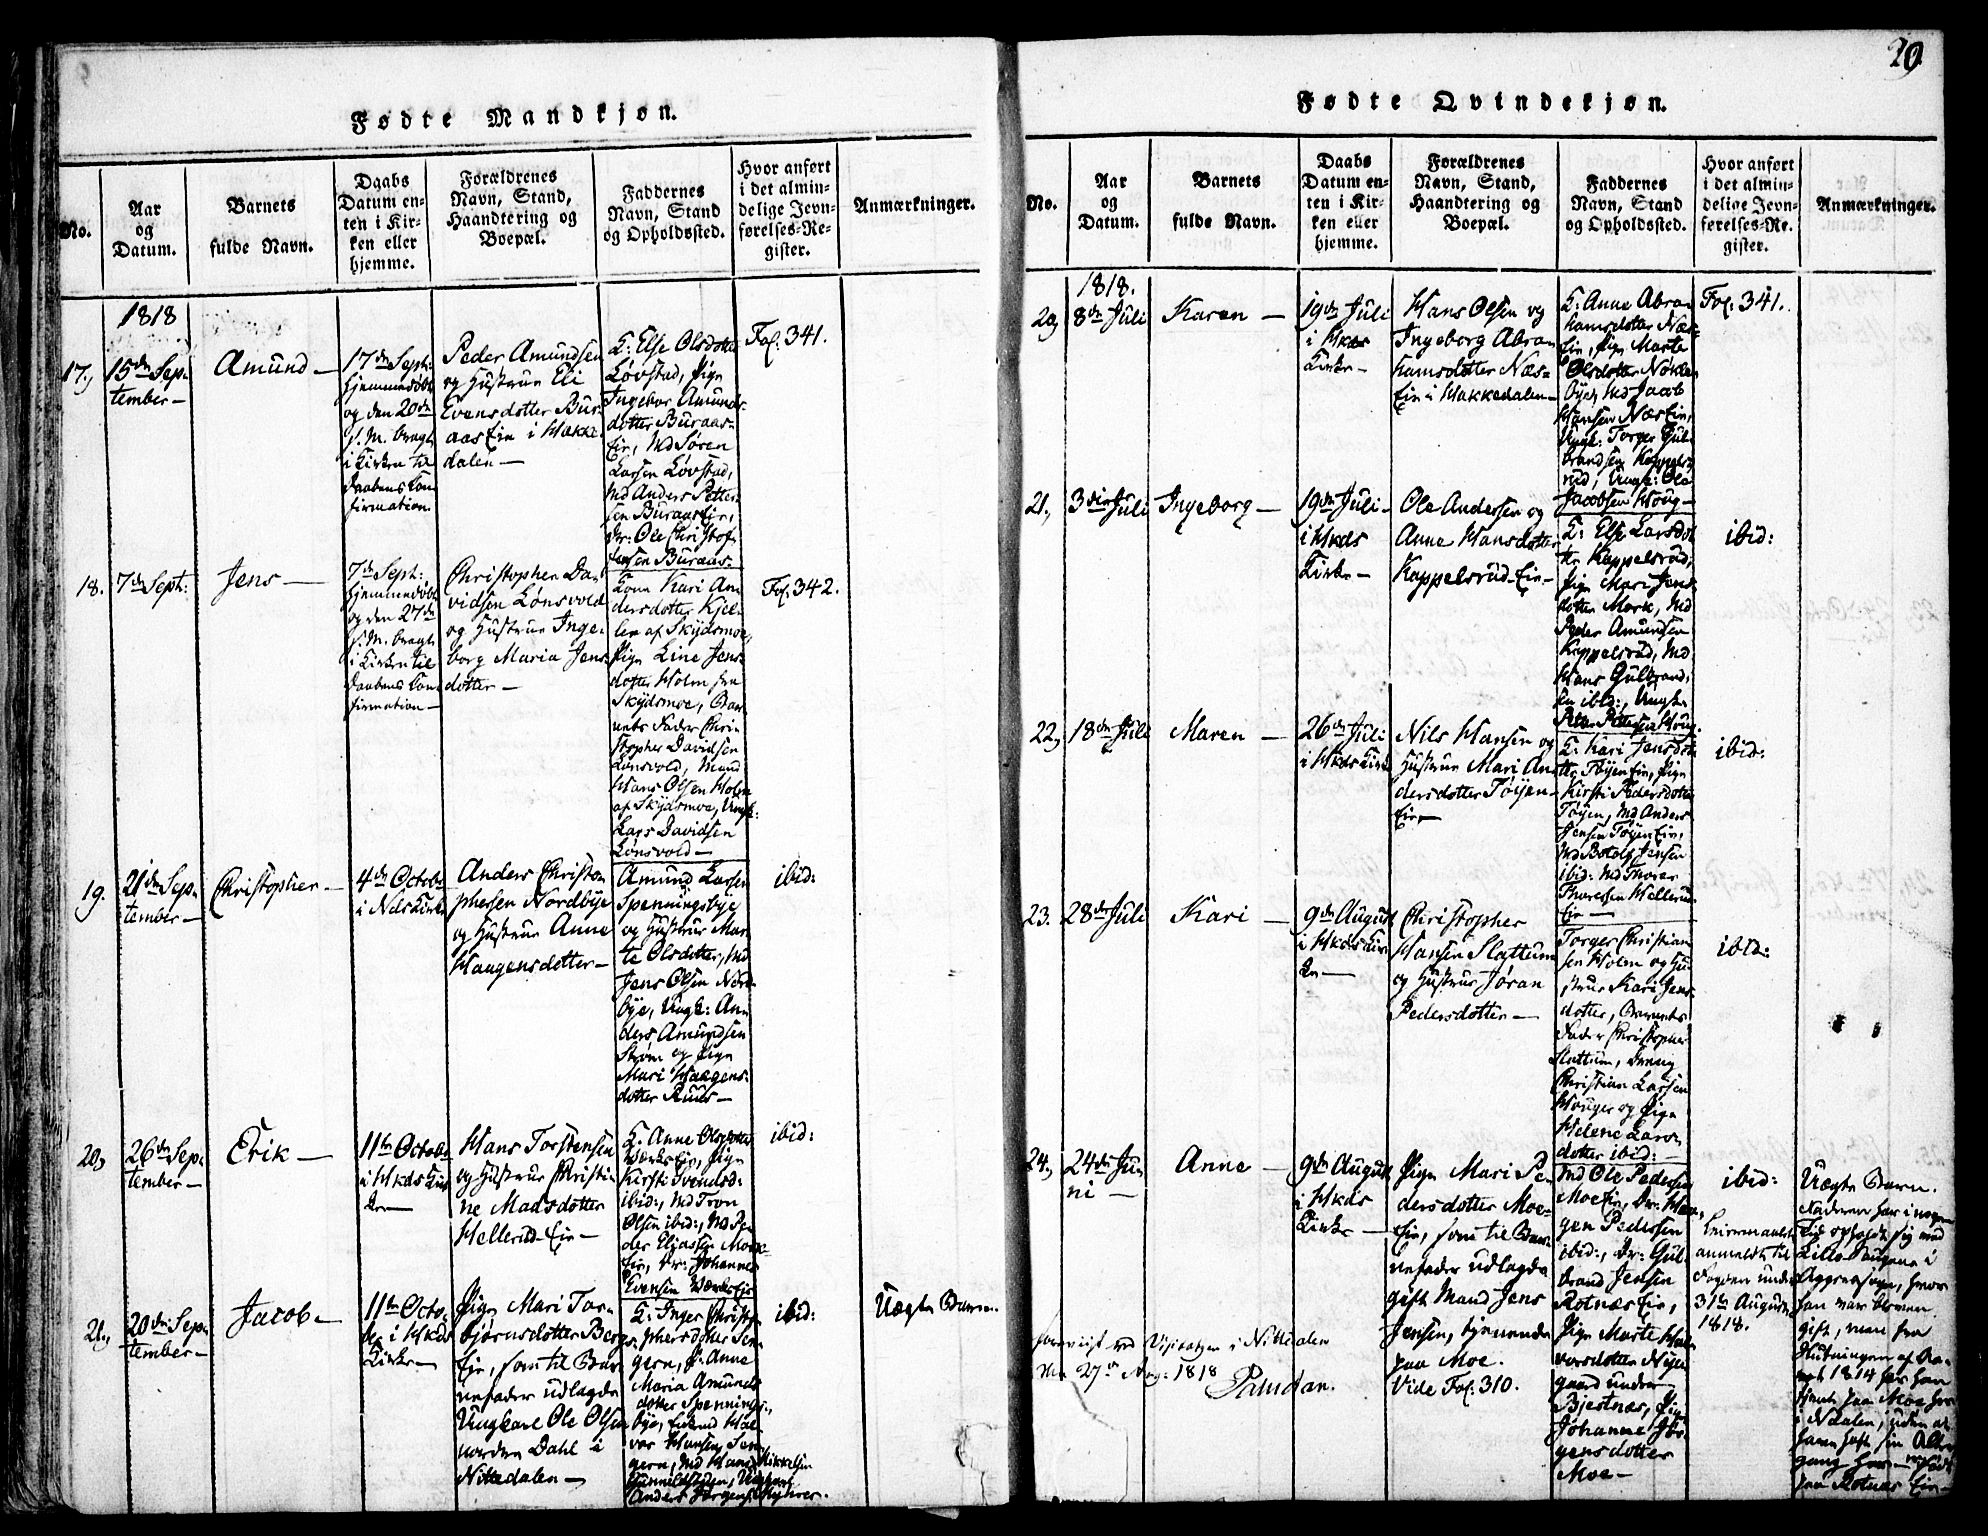 Fødte Mandkjøn.
No.
Aar
og
Datum.
Barnets
fulde Navn.
Daabs
Datum en-
ten i Kir-
ken eller
hjemme.
Forældrenes
Navn, Stand,
Haandtering og
Boepæl.
Faddernes
Navn, Stand
og Opholdssted.
Hvor anført
i det almin-
delige Jevn-
førelses-Re-
gister.
Anmærkninger.
1818
17,
15de Sep-
tember —
Amund —
17de Sept:
hjemmedøbt
og den 20de
s. M. bragt
i Kirken til
Daabens Con
firmation.
Peder Amundsen
og Hustrue Eli
Evensdotter Bur-
aas Eie i Hakke
dalen —
K: Else Olsdotter
Løvstad, Pige
Ingebor Amunds-
dotter Buraas-
Eie, Md Søren
Larsen Løvstad,
Md Anders Petter-
sen BuraasEie,
Dr: Ole Christof-
fersen Buraas-
Fol. 341.
18.
7de Sept:
Jens —
7de Sept:
hjemmedøbt
og den 27de
s. M. bragt
i Kirken til
Daabens Con
firmation —
Christopher Da-
vidsen Lønsvold
og Hustrue Inge-
borg Maria Jens-
dotter —
Kone Kari An-
dersdotter Kjel-
len af Skydsmoe,
Pige Line Jens-
dotter Holm fra
Skydsmoe, Bar-
nets Fader Chri-
stopher Davidsen
Lønsvold, Mand
Hans Olsen Holm
af Skydsmoe, Ungk:
Lars Davidsen
Lønsvold —
Fol. 342.
19.
21de Sep-
tember —
Christopher —
4de Octob:
i Ndls Kirke
Anders Christo-
phersen Nordbye
og Hustrue Anne
Haagensdotter —
Amund Larsen
Spenningsbye
og Hustrue Mar-
te Olsdotter, Md
Jens Olsen Nord-
bye, Ungk: An-
ders Amundsen
Strøm og Pige
Mari Haagens-
dotter Ruus —
ibid:
20,
26de Sep-
tember —
Erik —
11te Octob:
i Hkds Kir
ke —
Hans Torstensen
og Hustrue Christi-
ne Madsdotter
Hellerud-Eie —
K. Anne Olsdotter
VærksEie, Pige
Kirsti Svendsd:
ibid:, Md Tron
Olsen ibid:, Md Pe-
der Eliassen Moe-
Eie, Dr: Johannes
Evensen VærksEie
ibid:
21,
20de Sep-
tember —
Jacob —
11te Octo-
ber i Hkds
Kirke —
Pige Mari Tor-
bjørnsdotter Berg-
Eie, som til Bar-
nefader udlagde
Ungkarl Ole Olsen
norden Dahl i
Nittedalen —
K: Inger Christo-
phersdotter Sen-
gern, P: Anne
Maria Amunds
dotter Spennings-
bye, Enkmd Hal-
vor Hansen Sen-
gern, Md Hans Mikkelsen
Anders Jørgens
ibid:
Uægte Barn.
20
Fødte Qvindekjøn.
No.
Aar
og
Datum.
Barnets
fulde Navn.
Daabs
Datum en-
ten i Kir-
ken eller
hjemme.
Forældrenes
Navn, Stand,
Haandtering og
Boepæl.
Faddernes
Navn, Stand
og Opholdssted.
Hvor anført
i det almin-
delige Jevn-
førelses-Re-
gister.
Anmærkninger.
1818.
20,
8de Juli
Karen —
19de Juli
i Hkds
Kirke —
Hans Olsen og
Ingeborg Abra-
hamsdotter Næs-
Eie i Hakkedalen —
K: Anne Abra-
hamsdotter Næs-
Eie, Pige Marte
Olsdotter Nøkle-
bye, Md Jacob
Hansen NæsEie,
Ungk: Torger Gul-
brandsen Kappels-
rud, Ungk: Ole
Jacobsen Houg —
Fol. 341.
21,
3die Juli
Ingeborg —
19de Juli —
i Hkds
Kirke —
Ole Andersen og
Anne Hansdotter
Kappelsrud-Eie —
K: Else Larsdot-
ter Kappelsrud,
Pige Mari Jens-
dotter Mork, Md
Peder Amundsen
Kappelsrud, Md
Hans Gulbrand-
sen ibid:, Ungk:
Peter Pettersen Houg.
ibid:
22,
18de Juli
Maren —
26de Juli
i Hkds Kirke
Nils Hansen og
Hustrue Mari An-
dersdotter Tøyen-
Eie —
K: Kari Jensdot-
ter TøyenEie, Pige
Kirsti Pedersdotter
Tøyen, Md Anders
Jensen TøyenEie,
Md Botolf Jensen
ibid: Md Thorer
Thoresen Hellerud
Eie —
ibid:
23.
28de Juli
Kari —
9de August
i Hkds Kir-
ke —
Christopher
Hansen Slattum
og Hustrue Jøran
Pedersdotter —
Torger Christian
sen Holm og Hu-
strue Kari Jens-
dotter, Barnets
Fader Christopher
Slattum, Dreng
Christian Larsen
Houger og Pige
Helene Lars-
dotter ibid: —
ibid:
24,
24de Ju-
ni —
Anne —
9de August
i Hkds
Kirke —
Pige Mari Pe-
dersdotter Moe-
Eie, som til Bar-
nefader udlagde
gift Mand Jens
Jensen, tjenende
paa Moe.
Vide Fol: 310.
Md Ole Pedersen
MoeEie, Dr: Haa-
gen Pedersen
ibid:, Dr: Gul-
brand Jensen
RotnæsEie,
Pige Marte Hal-
vorsdotter Nye-
gaard under
Bjertnæs, Pige
Johanne Jør-
gensdotter
Moe —
ibid:
Leiermaalet
anmeldt til
Fogden under
31te Augusti
1818.
Uægte Barn.
Faderen har i nogen
Tid opholdt sig ved
Lilleaugene i
Aggers Sogn, hvor
han var bleven
gift, men fra
Flutningen af Aa-
ret 1814 har han
tjent paa Moe her
i Ndalen, uden at
have havt sin Alter-
gang her — født
paa Rotnæs Eie —
foreviist ved Visitatzen i Nittedalen
den 27de Aug: 1818
Paludan.